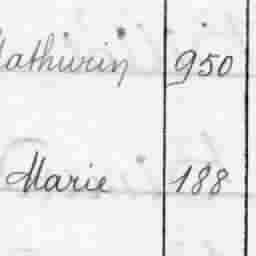 Mathurin 950
Marie 188